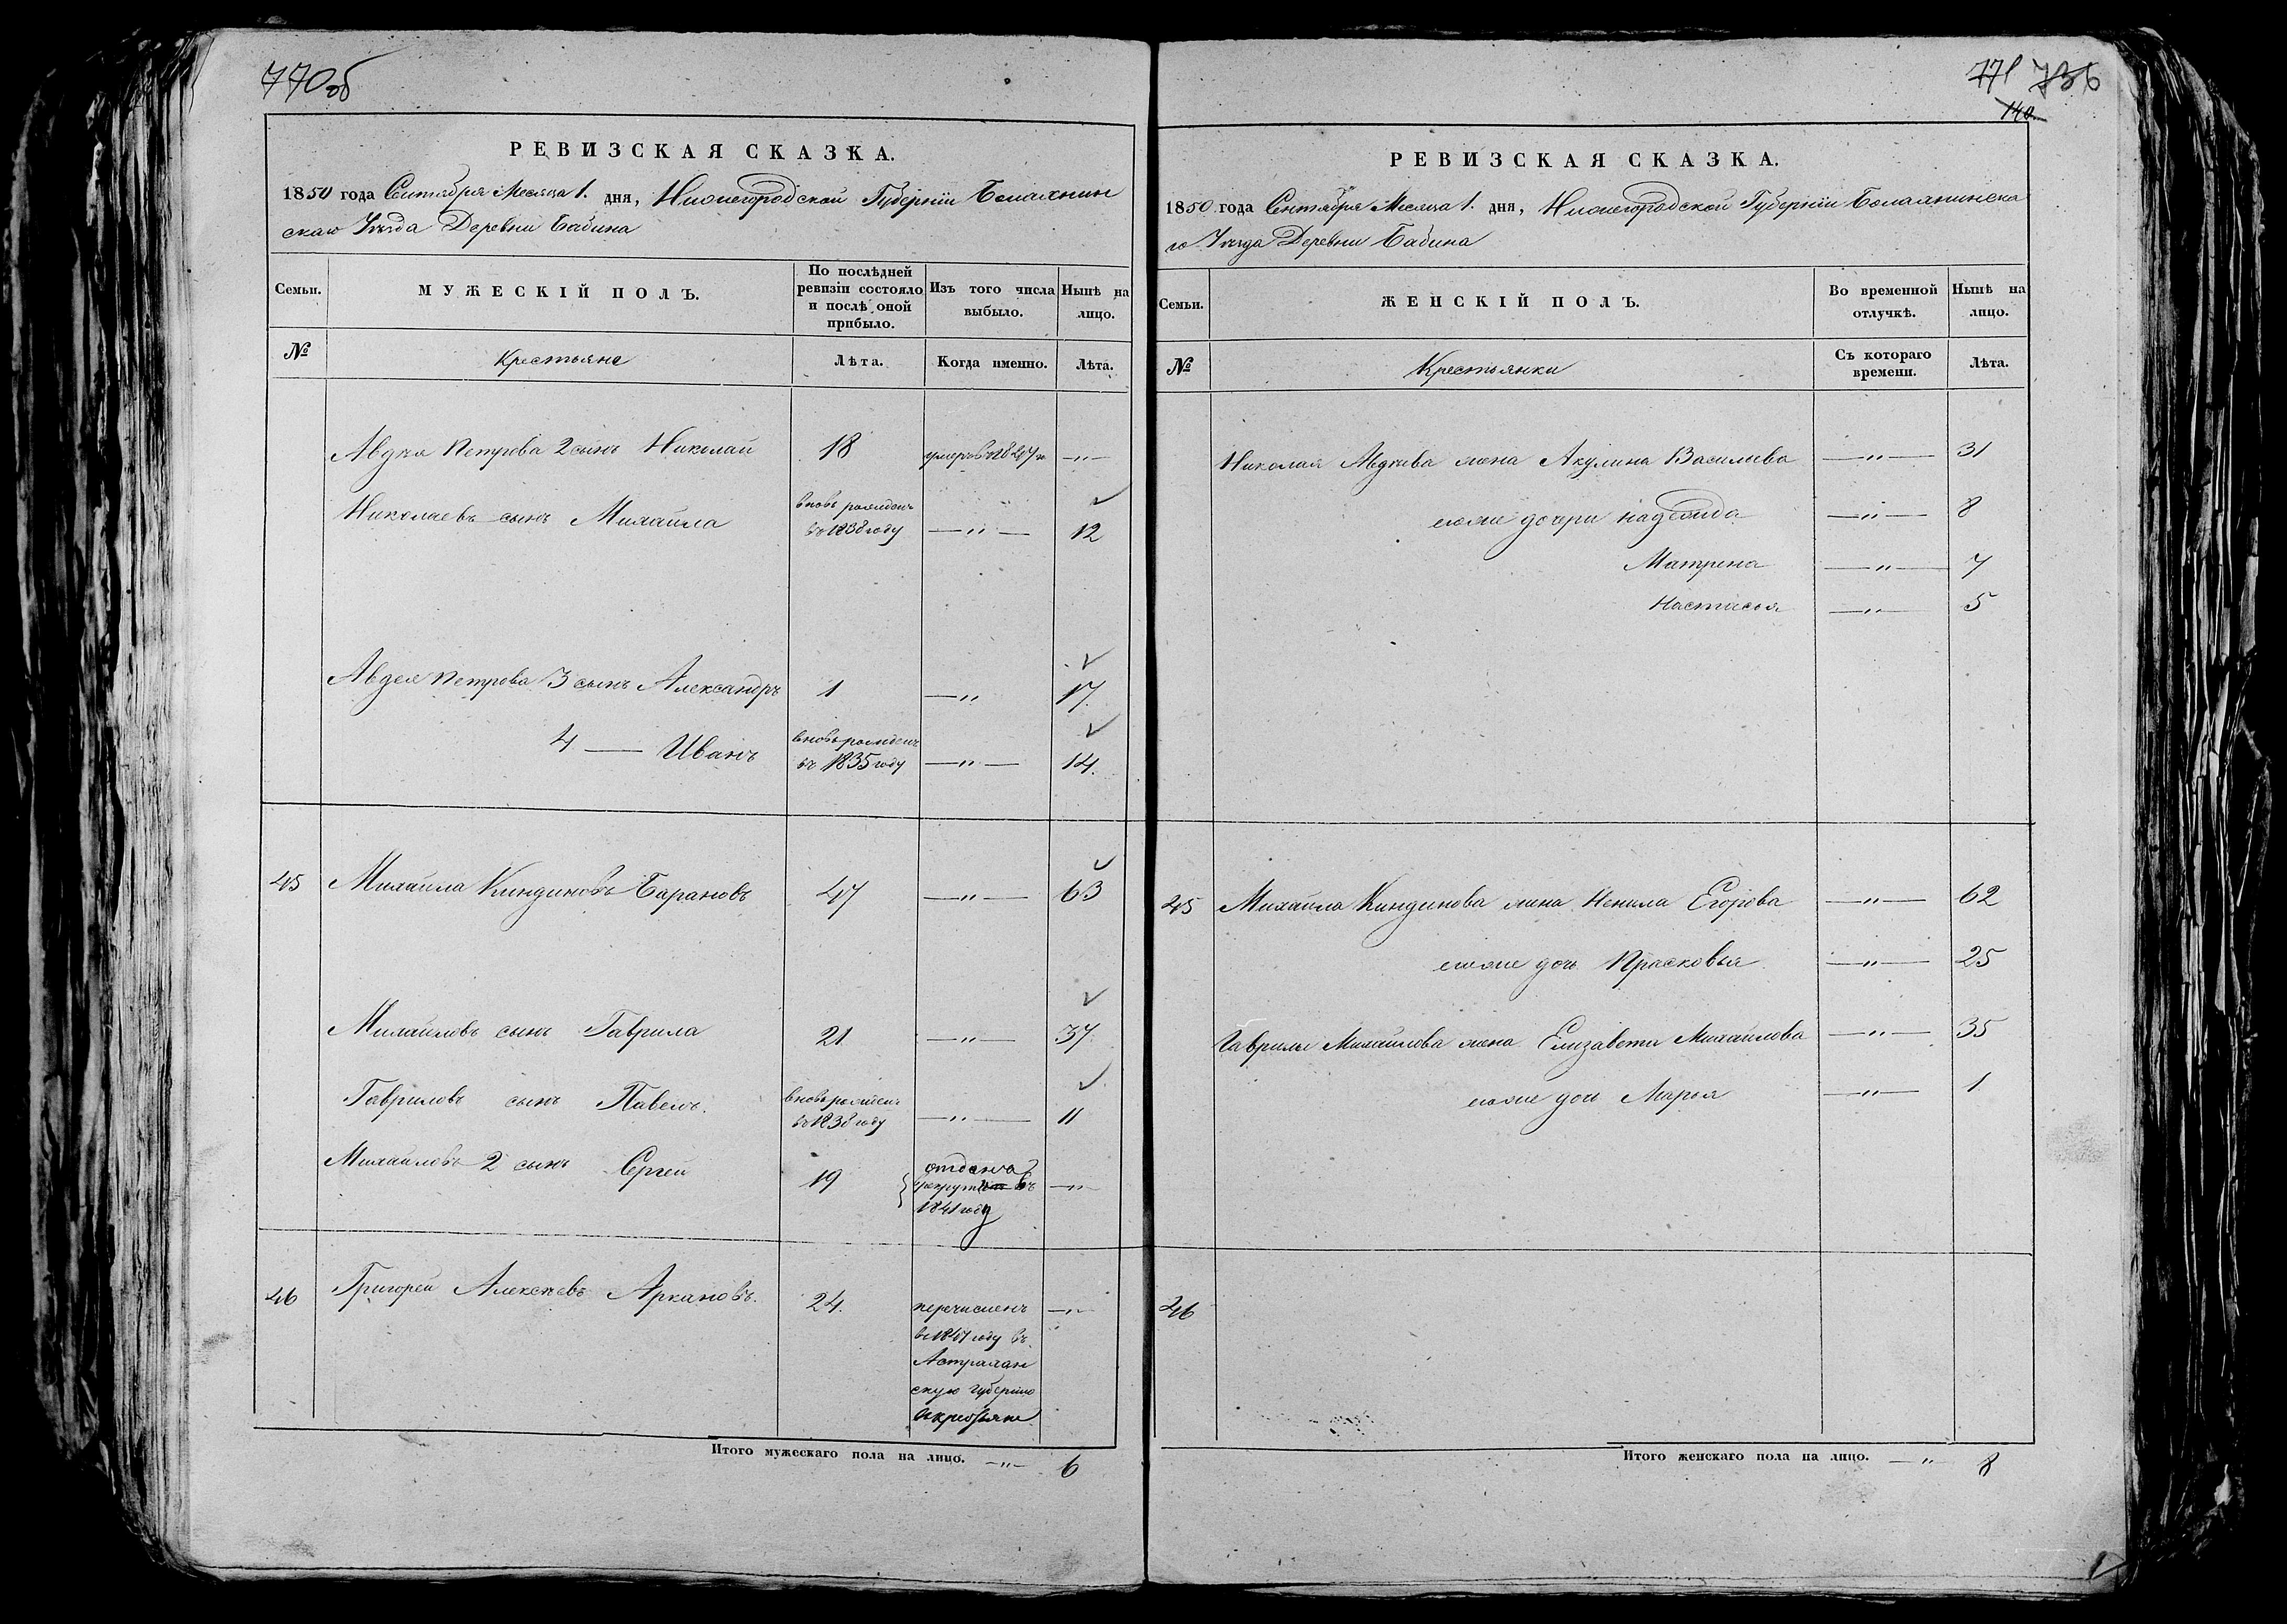 770об
РЕВИЗСКАЯ СКАЗКА.
1850 года Сентября Месяца 1. дня, Нижегородской Губерніи Балахнин
скаго Уѣзда Деревни Бабина
Семьи.
МУЖЕСКІЙ ПОЛЪ.
По послѣдней ревизіи состояло и послѣ оной прибыло.
Изъ того числа выбыло.
Нынѣ на лицо.
№
Крестьяне
Лѣта.
Когда именно.
Лѣта.
Авдея Петрова 2 сынъ Николай 18 умеръ въ 1847 г. —"—
Николаевъ сынъ Михайла вновь рожденъ въ 1838 году —"— 12
Авдея Петрова 3 сынъ Александръ 1 —"— 17.
4 — Иванъ вновь рожденъ въ 1835 году —"— 14.
45 Михайла Киндиновъ Барановъ 47 —"— 63
Михайловъ сынъ Гаврила 21 —"— 37
Гавриловъ сынъ Павелъ. вновь рожденъ въ 1838 году —"— 11
Михайловъ 2 сынъ Сергей 19 отданъ в рекруты въ 1841 году —"—
46 Григорей Алексѣевъ Аркановъ. 24. перечисленъ
в 1847 году въ
Астрахан
скую губернію
в крестьяне —"—
Итого мужескаго пола на лицо. —"— 6
771 736
140
РЕВИЗСКАЯ СКАЗКА.
1850 года Сентября Месяца 1. дня, Нижегородской Губерніи Балахнинска
го Уѣзда Деревни Бабина
Семьи.
ЖЕНСКІЙ ПОЛЪ.
Во временной отлучкѣ.
Нынѣ на лицо.
№
Крестьянки
Съ котораго времени.
Лѣта.
Николая Авдѣева жена Акулина Васильева —"— 31
егоже дочери Надежда —"— 8
Матрена —"— 7
Настасья —"— 5
45 Михайла Киндинова жена Ненила Егорова —"— 62
егоже дочь Прасковья —"— 25
Гаврилы Михайлова жена Елизавета Михайлова —"— 35
егоже дочь Марья —"— 1
46
Итого женскаго пола на лицо. —"— 8